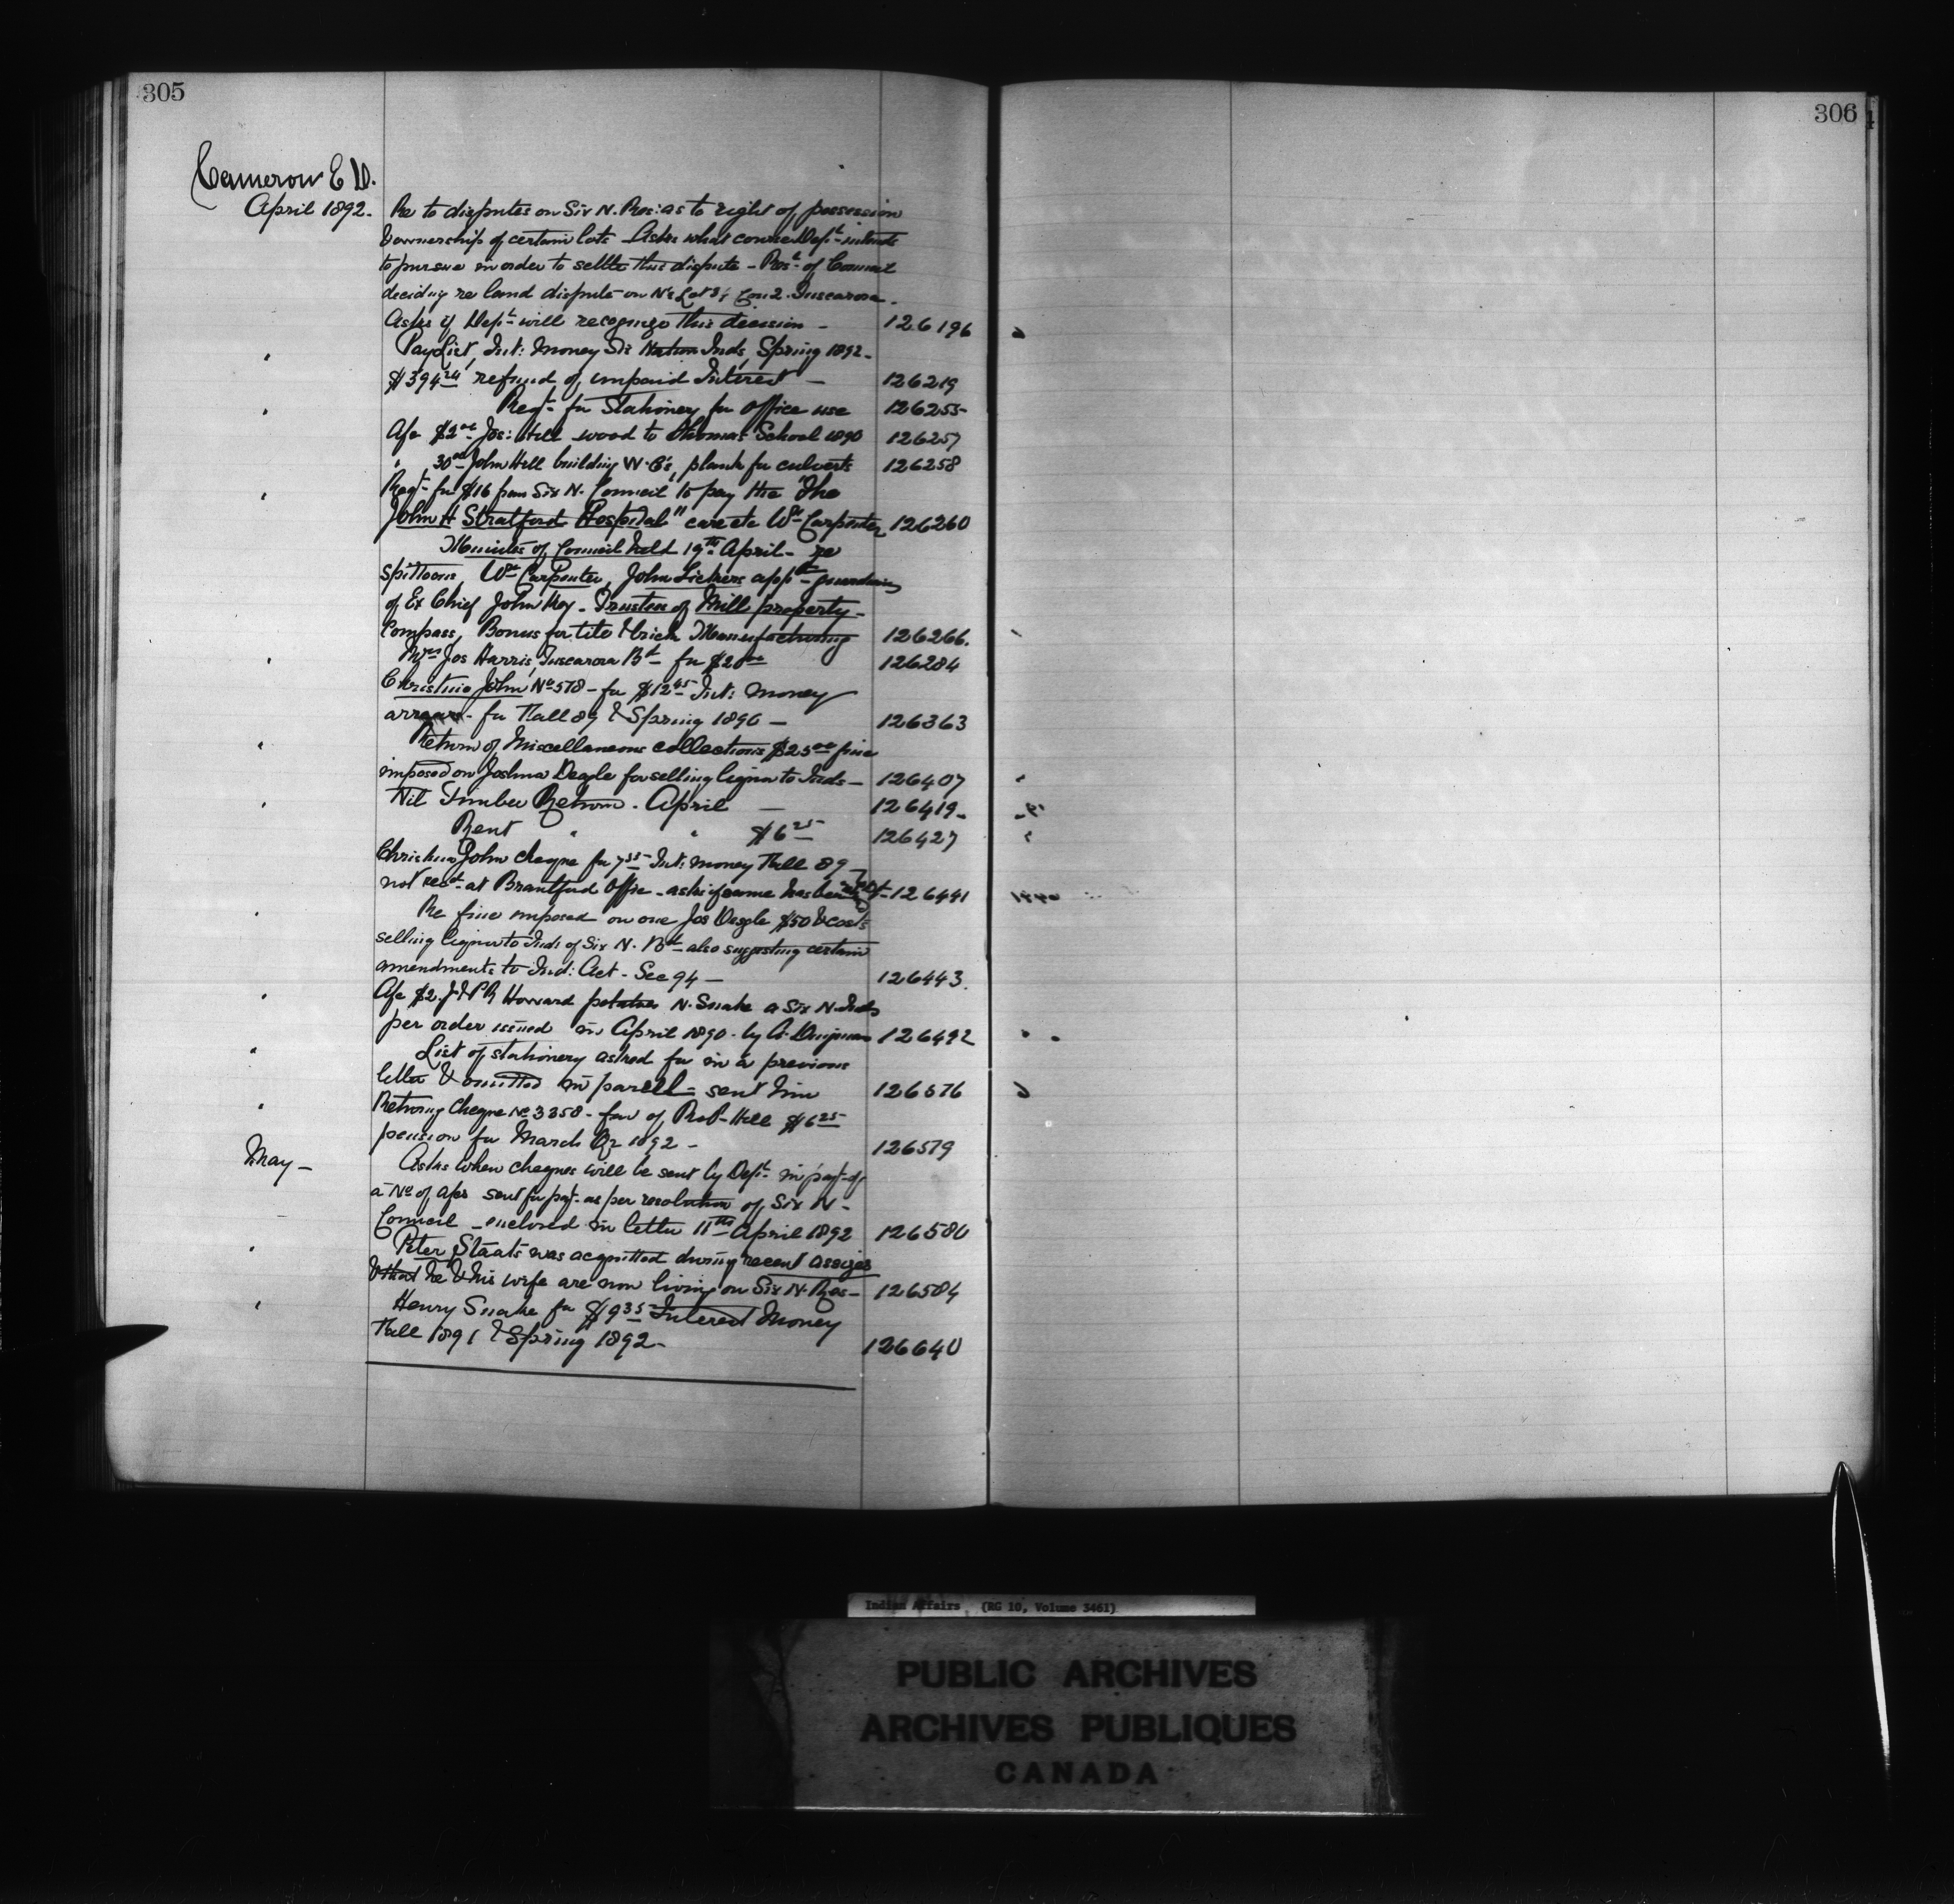 305
306
Cameron E D.
April 1892.
Re to disputes on Six N. Res: as to right of possession
& ownership of certain lots - Asks what course Dept intends
to pursue in order to settle this dispute - Rest of Council
deciding re land dispute on N½ Lot 3 Con 2. Tuscarora -
Asks if Dept will recognize this decision - 126196
" Pay List, Int: Money Six Nation Inds, Spring 1892 -
$394.24 refund of unpaid Interest - 126219
" Reqt for Stationery for office use 126255
Afc $2.00 Jos: Hill wood to Thomas School 1890 126257
" 30.00 John Hill building W.C's, plank for culverts 126258
" Reqt for $16 from Six N. Council to pay the "The
John H Stratford Hospital" care etc Wm Carpenter 126260
Minutes of Council held 19th April - re
spittoons, Wm Carpenter, John Lickers appt guardian
of Ex Chief John Key - Trustee of Mill property -
Compass, Bonus for tile & brick Manufacturing 126266.
" Mrs Jos Harris, Tuscarora Bd for $20.00 126284
Christine John No 578 - for $12.45 Int: Money
arrears - for Fall 89 & Spring 1890 - 126363
" Return of Miscellaneous collections $25.00 fine
imposed on Joshua Deagle for selling liquor to Inds - 126407
" Nil Timber Return - April - 126419 -
Rent " " $6.25 126427
Christine John cheque for 7.55 Int: money Fall 89 -
not recd at Brantford Office - asks if same has been 126441
" Re fine imposed on one Jos Deagle $50 & costs
selling liquor to Inds of Six N. Bd - also suggesting certain
amendments to Ind: Act - Sec 94 - 126443.
" Afc $2. J & P R Howard potatoes N. Snake a Six N. Inds
per order issued in April 1890 - by A. Dingman 126492
" List of stationery asked for in a previous
letter & omitted in parcell - sent him 126576
" Retrng Cheque No 3358 - fav of Robt Hill $6.25
pension for March Qr 1892 - 126579
May - Asks when cheques will be sent by Dept in payt of
a No of afcs sent for payt as per resolution of Six N -
Council - enclosed in letter 11th April 1892 126580
" Peter Staats was acquitted during recent assizes
& that he & his wife are now living on Six N. Res - 126584
" Henry Snake for $9.35 Interest Money
Fall 1891 & Spring 1892 - 126640
Indian Affairs (RG 10, Volume 3461)
PUBLIC ARCHIVES
ARCHIVES PUBLIQUES
CANADA